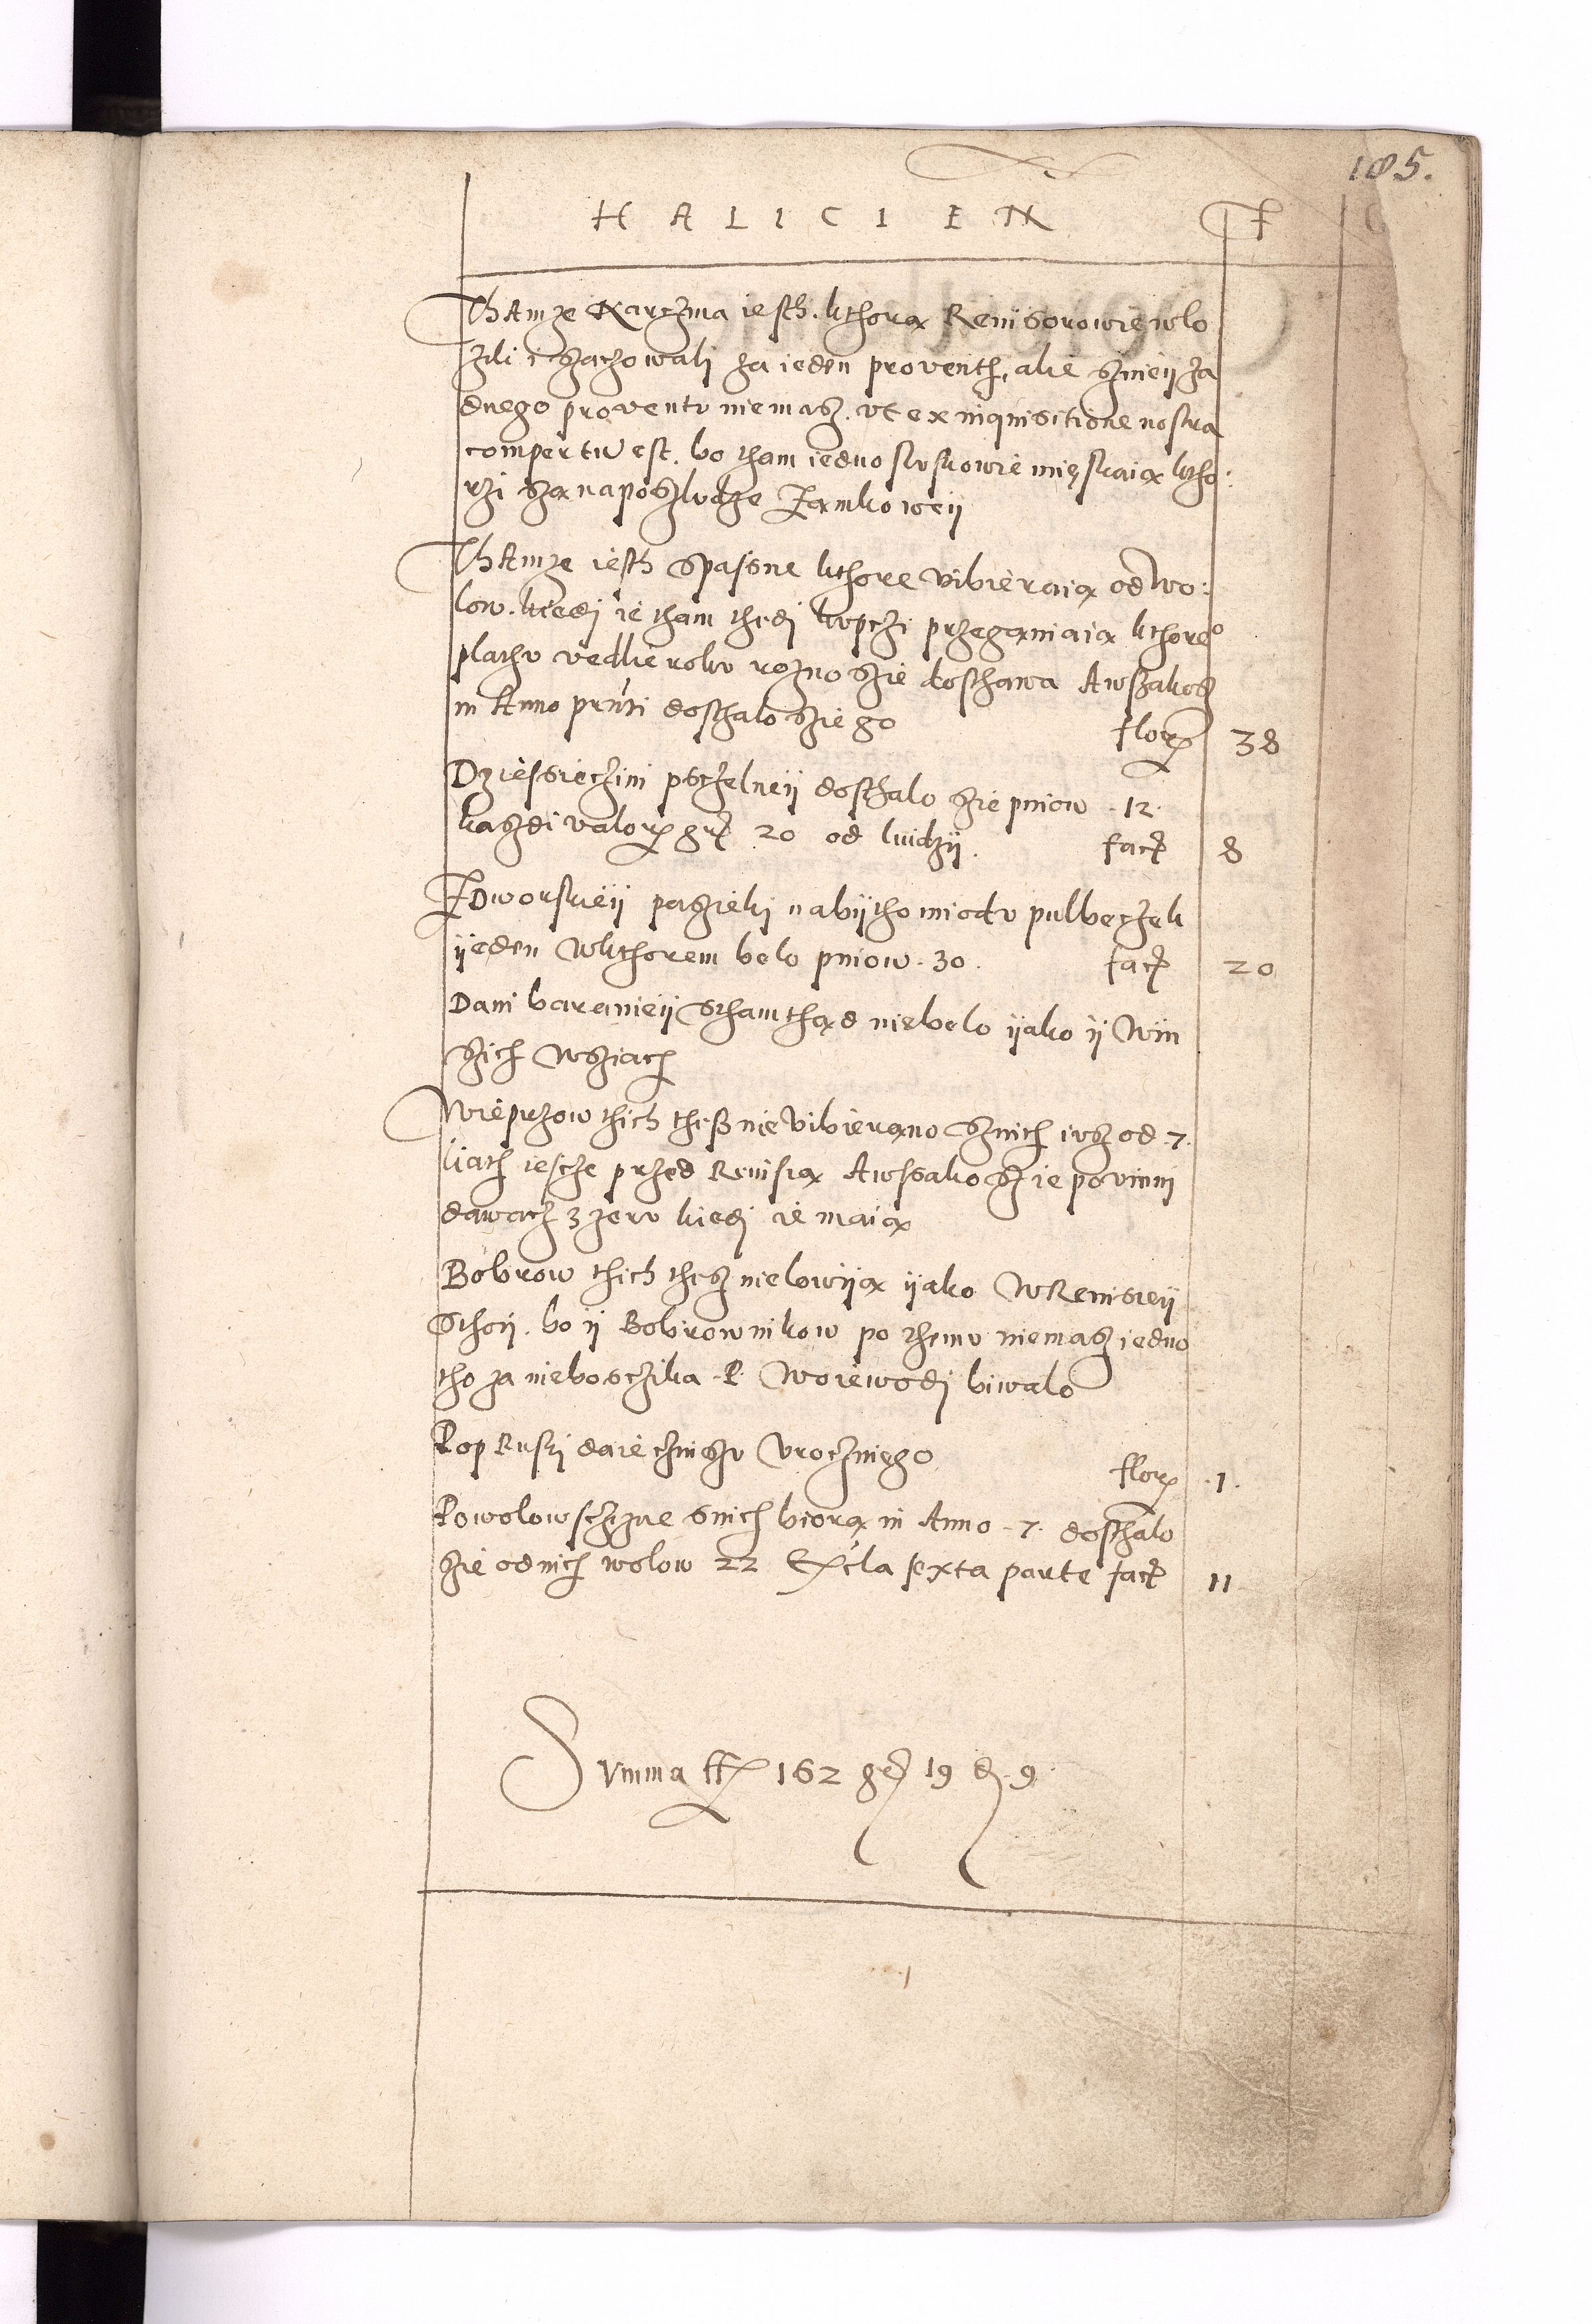 185.
HALICIEN F
Thamze Karczma iesth. kthora Revisorowie wlo
zili i szaczowali za ieden proventh, alie znieÿ za
dnego proventu niemasz. ut ex inquisitione nostra
compertu est. bo tham iedno sluskowie mięskaia ktho:
rzi są na poszludze Zamkoweÿ
Thamze iesth Spasne kthore vibieraia od wo:
low. kiedi ie tham thedi kupczi przeganiaia kthore°
placzu vedlie roku rozno szie dosthawa Awszakosz
in Anno pnti dosthalo szie go flor 38
Dziessieczini psczelneÿ dosthalo szie pniow .12.
kazdi valor gr 20 od luidzÿ. fact 8
ZDworskieÿ pasieki nabÿtho miodu pulbeczek
ÿeden Wkthorem belo pniow .30. fact 20
Dani baranieÿ Stham thąd niebelo ÿako ÿ Win
szich Wsziach
Wieprzow thich thesz nie Vibierano sznich iusz od .7.
liath iescze przed Revisia Awssako szie povinni
dawacz z zeru kiedi ie maia
Bobrow thich thesz nielowÿa ÿako WRevisieÿ
Sthoÿ. bo ÿ Bobrownikow po themu niemasz iedno
tho za nieboszczika P. Woiewodi biwalo
Pop Ruski daie czinszu Vroczniego flor .1.
Powolowsczizne snich biora in Anno .7. dosthalo
szie od nich wolow 22 Excla sexta parte fact 11
Summa ff 162 gr 19 d. 9